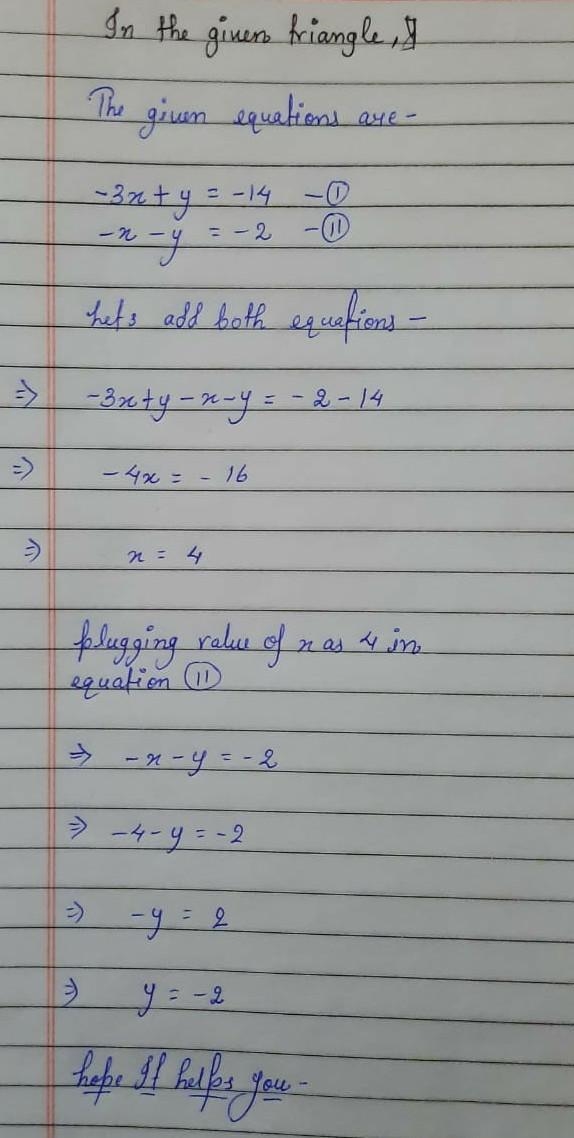 In the given triangle,
The given equations are-
-3x+y = -14 -①
-x-y = -2 -⑪
Lets add both equations-
⇒ -3x+y-x-y = -2-14
⇒ -4x = -16
⇒ x = 4
plugging value of x as 4 in
equation ⑪
⇒ -x-y = -2
⇒ -4-y = -2
⇒ -y = 2
⇒ y = -2
hope It helps you-